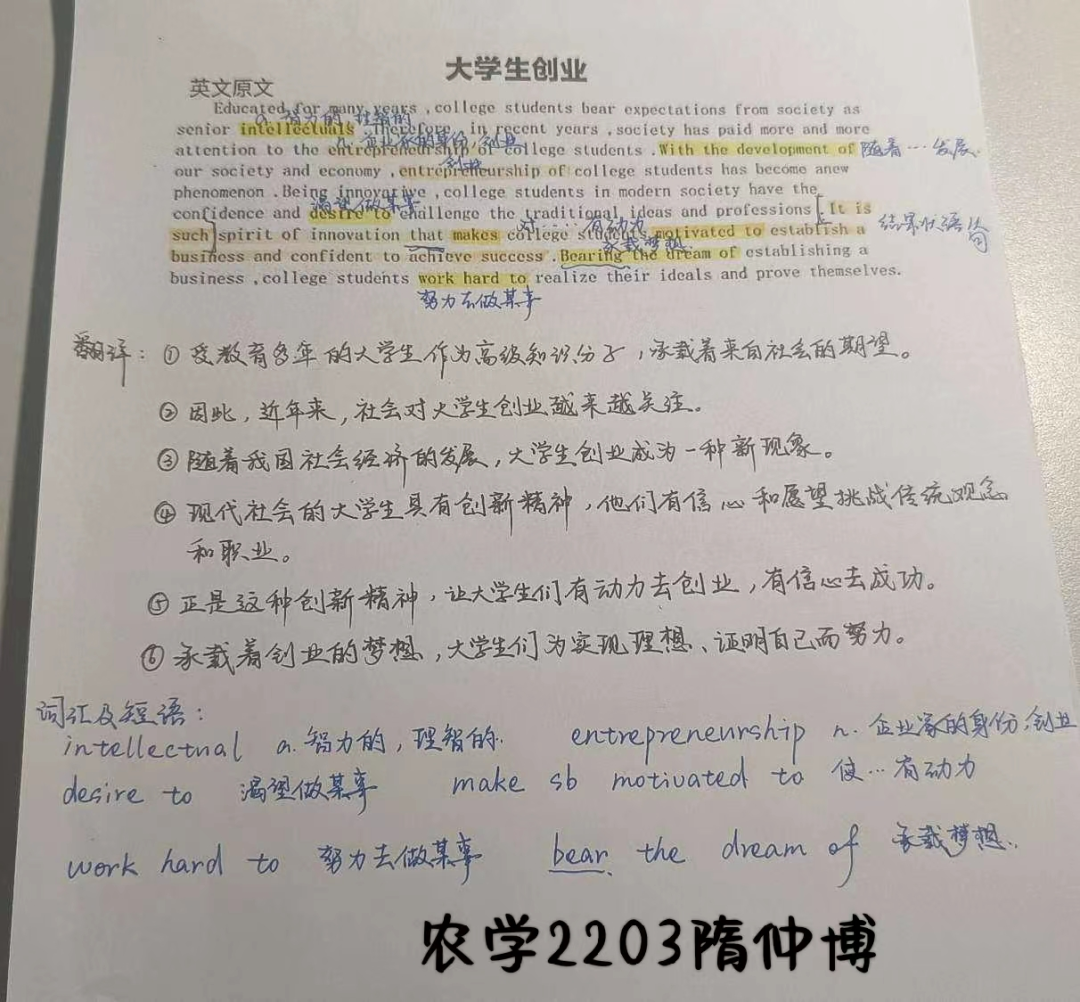 大学生创业
英文原文
Educated for many years ,college students bear expectations from society as
a. 智力的, 理智的
senior intellectuals .Therefore, in recent years ,society has paid more and more
n. 企业家的身份, 创业
attention to the entrepreneurship of college students .With the development of 随着…发展
创业
our society and economy ,entrepreneurship of college students has become anew
phenomenon .Being innovative ,college students in modern society have the
渴望做某事
confidence and desire to challenge the traditional ideas and professions [It is
使……有动力
such]spirit of innovation that makes college students motivated to establish a 结果状语从句
承载梦想
business and confident to achieve success .Bearing the dream of establishing a
business ,college students work hard to realize their ideals and prove themselves.
努力去做某事
翻译：① 受教育多年的大学生作为高级知识分子，承载着来自社会的期望。
② 因此，近年来，社会对大学生创业越来越关注。
③ 随着我国社会经济的发展，大学生创业成为一种新现象。
④ 现代社会的大学生具有创新精神，他们有信心和愿望挑战传统观念
和职业。
⑤ 正是这种创新精神，让大学生们有动力去创业，有信心去成功。
⑥ 承载着创业的梦想，大学生们为实现理想、证明自己而努力。
词汇及短语：
intellectnal a. 智力的, 理智的. entrepreneurship n. 企业家的身份, 创业
desire to 渴望做某事 make sb motivated to 使…有动力
work hard to 努力去做某事 bear the dream of 承载梦想.
农学2203隋仲博